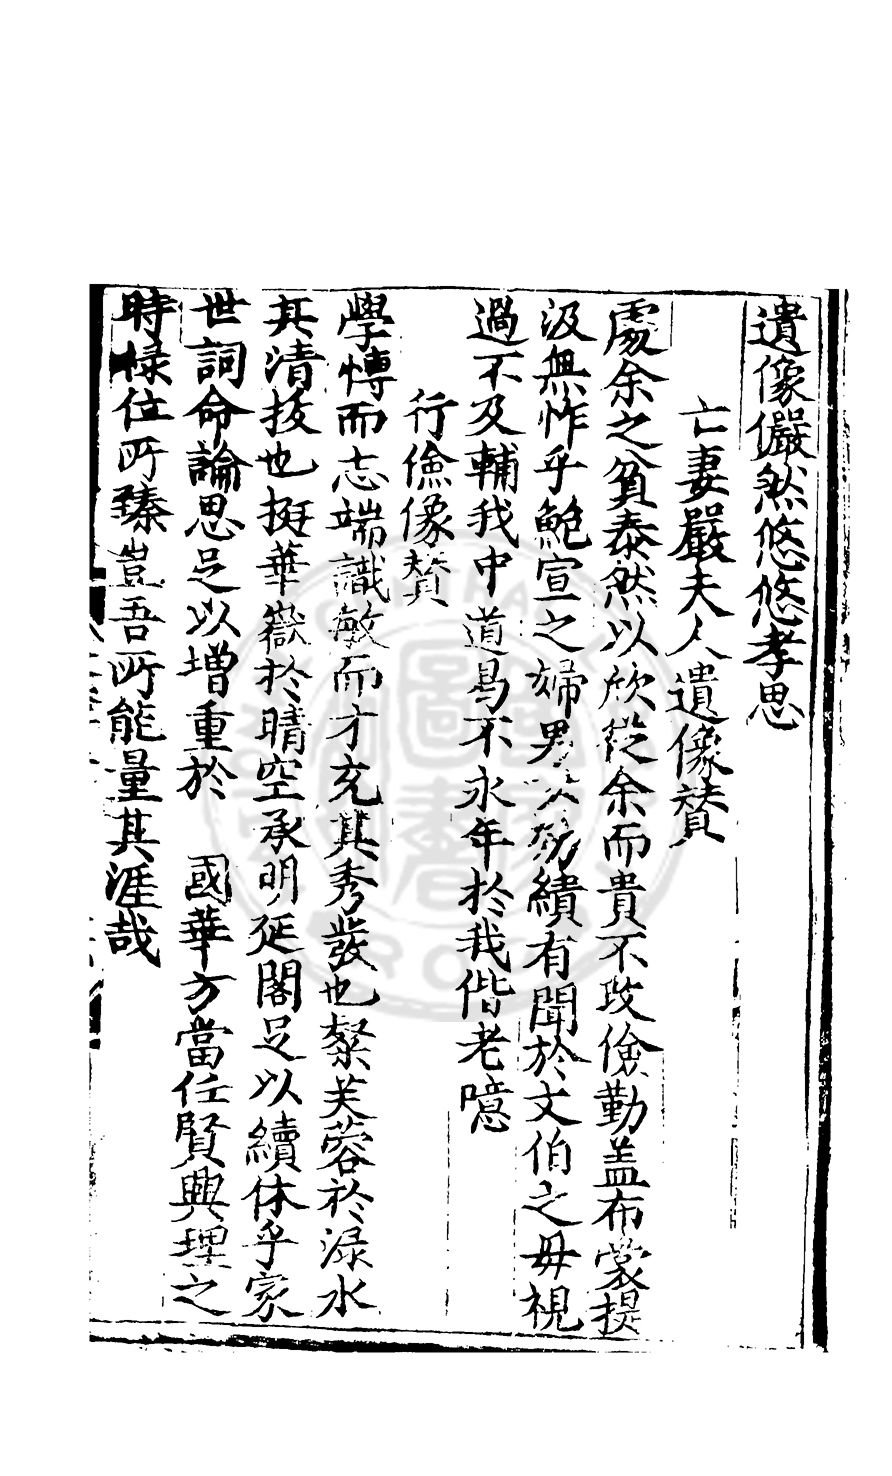 遺像儼然悠悠孝思
亡妻嚴夫人遺像贊
處余之貧泰然以欣從余而貴不改儉勤盖布裳提
汲無怍乎鮑宣之婦男女勞績有聞於文伯之母視
過不及輔我中道曷不永年於我偕老噫
行儉像贊
學博而志端識敏而才充其秀發也粲芙蓉於渌水
其清拔也挺華嶽於晴空承明延閣足以續休乎家
世詞命論思足以增重於 國華方當任賢興理之
時祿位所臻豈吾所能量其涯哉